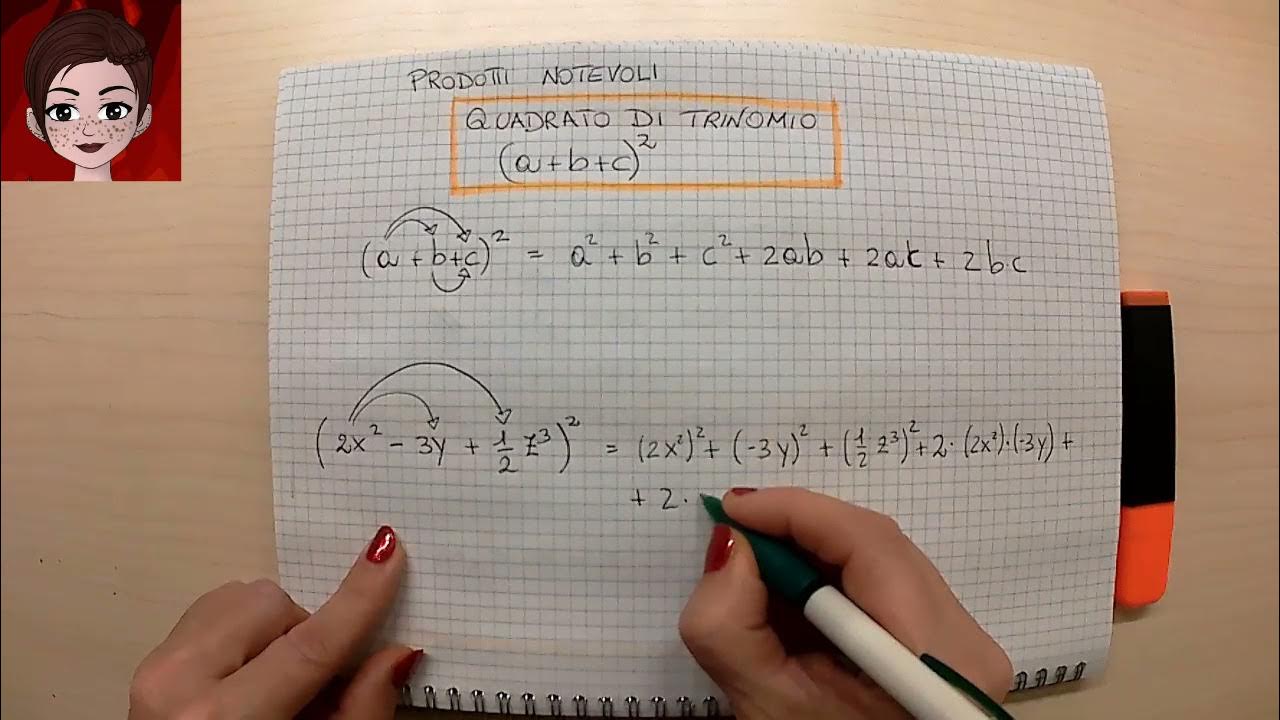 PRODOTTI NOTEVOLI
QUADRATO DI TRINOMIO
(a+b+c)²
(a+b+c)² = a² + b² + c² + 2ab + 2ac + 2bc
(2x² - 3y + 1/2 z³)² = (2x²)² + (-3y)² + (1/2 z³)² + 2·(2x²)·(-3y) +
+ 2·